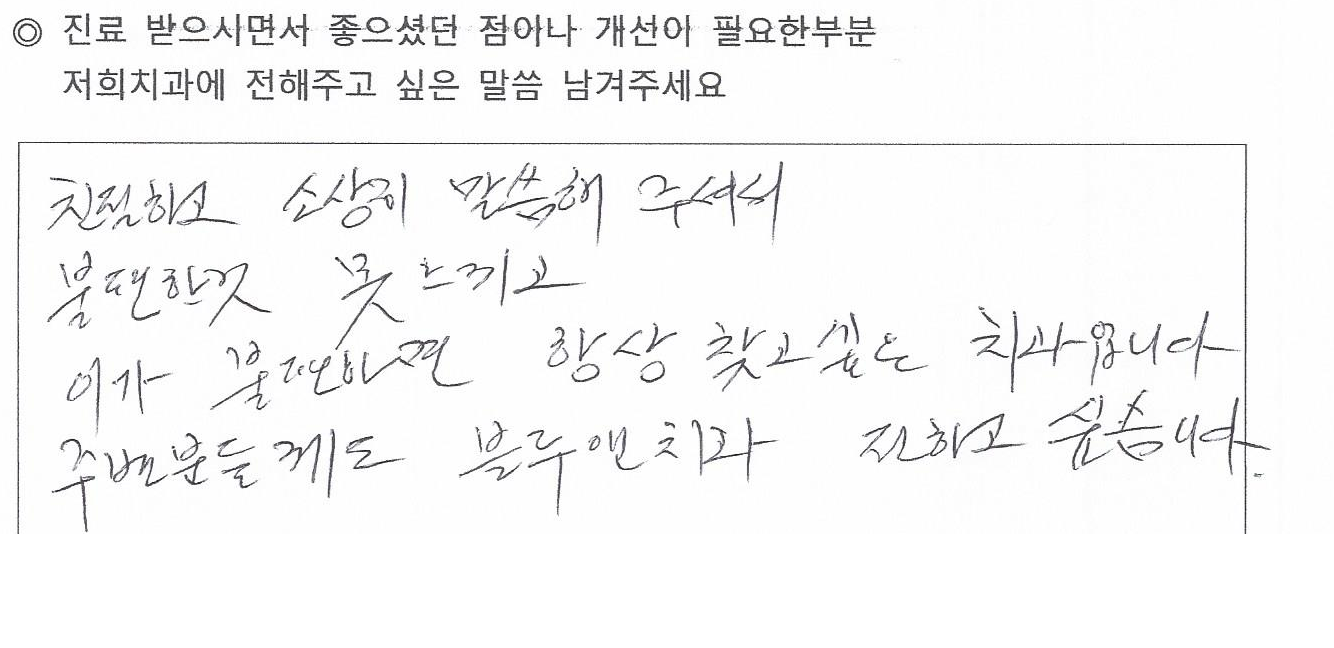 ◎ 진료 받으시면서 좋으셨던 점이나 개선이 필요한부분
저희치과에 전해주고 싶은 말씀 남겨주세요
친절하고 소상히 말씀해 주셔서
불편한것 못느끼고
이가 불편하면 항상 찾고싶은 치과입니다
주변분들께도 블루앤치과 전하고 싶습니다.